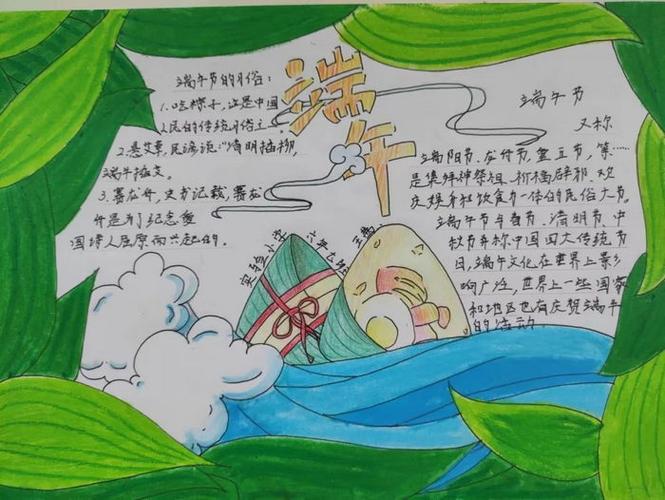 端午
端午节的习俗:
1.吃粽子,这是中国
人民的传统习俗之一。
2.悬艾草,民谚说:“清明插柳,
端午插艾。
3.赛龙舟,史书记载,赛龙
舟是为了纪念爱
国诗人屈原而兴起的。
端午节
又称
端阳节、龙舟节、重五节,等……
是集拜神祭祖、祈福辟邪、欢
庆娱乐和饮食为一体的民俗大节。
端午节与春节、清明节、中
秋节并称中国四大传统节
日,端午文化在世界上影
响广泛,世界上一些国家
和地区也有庆贺端午
的活动。
实验小学
六年